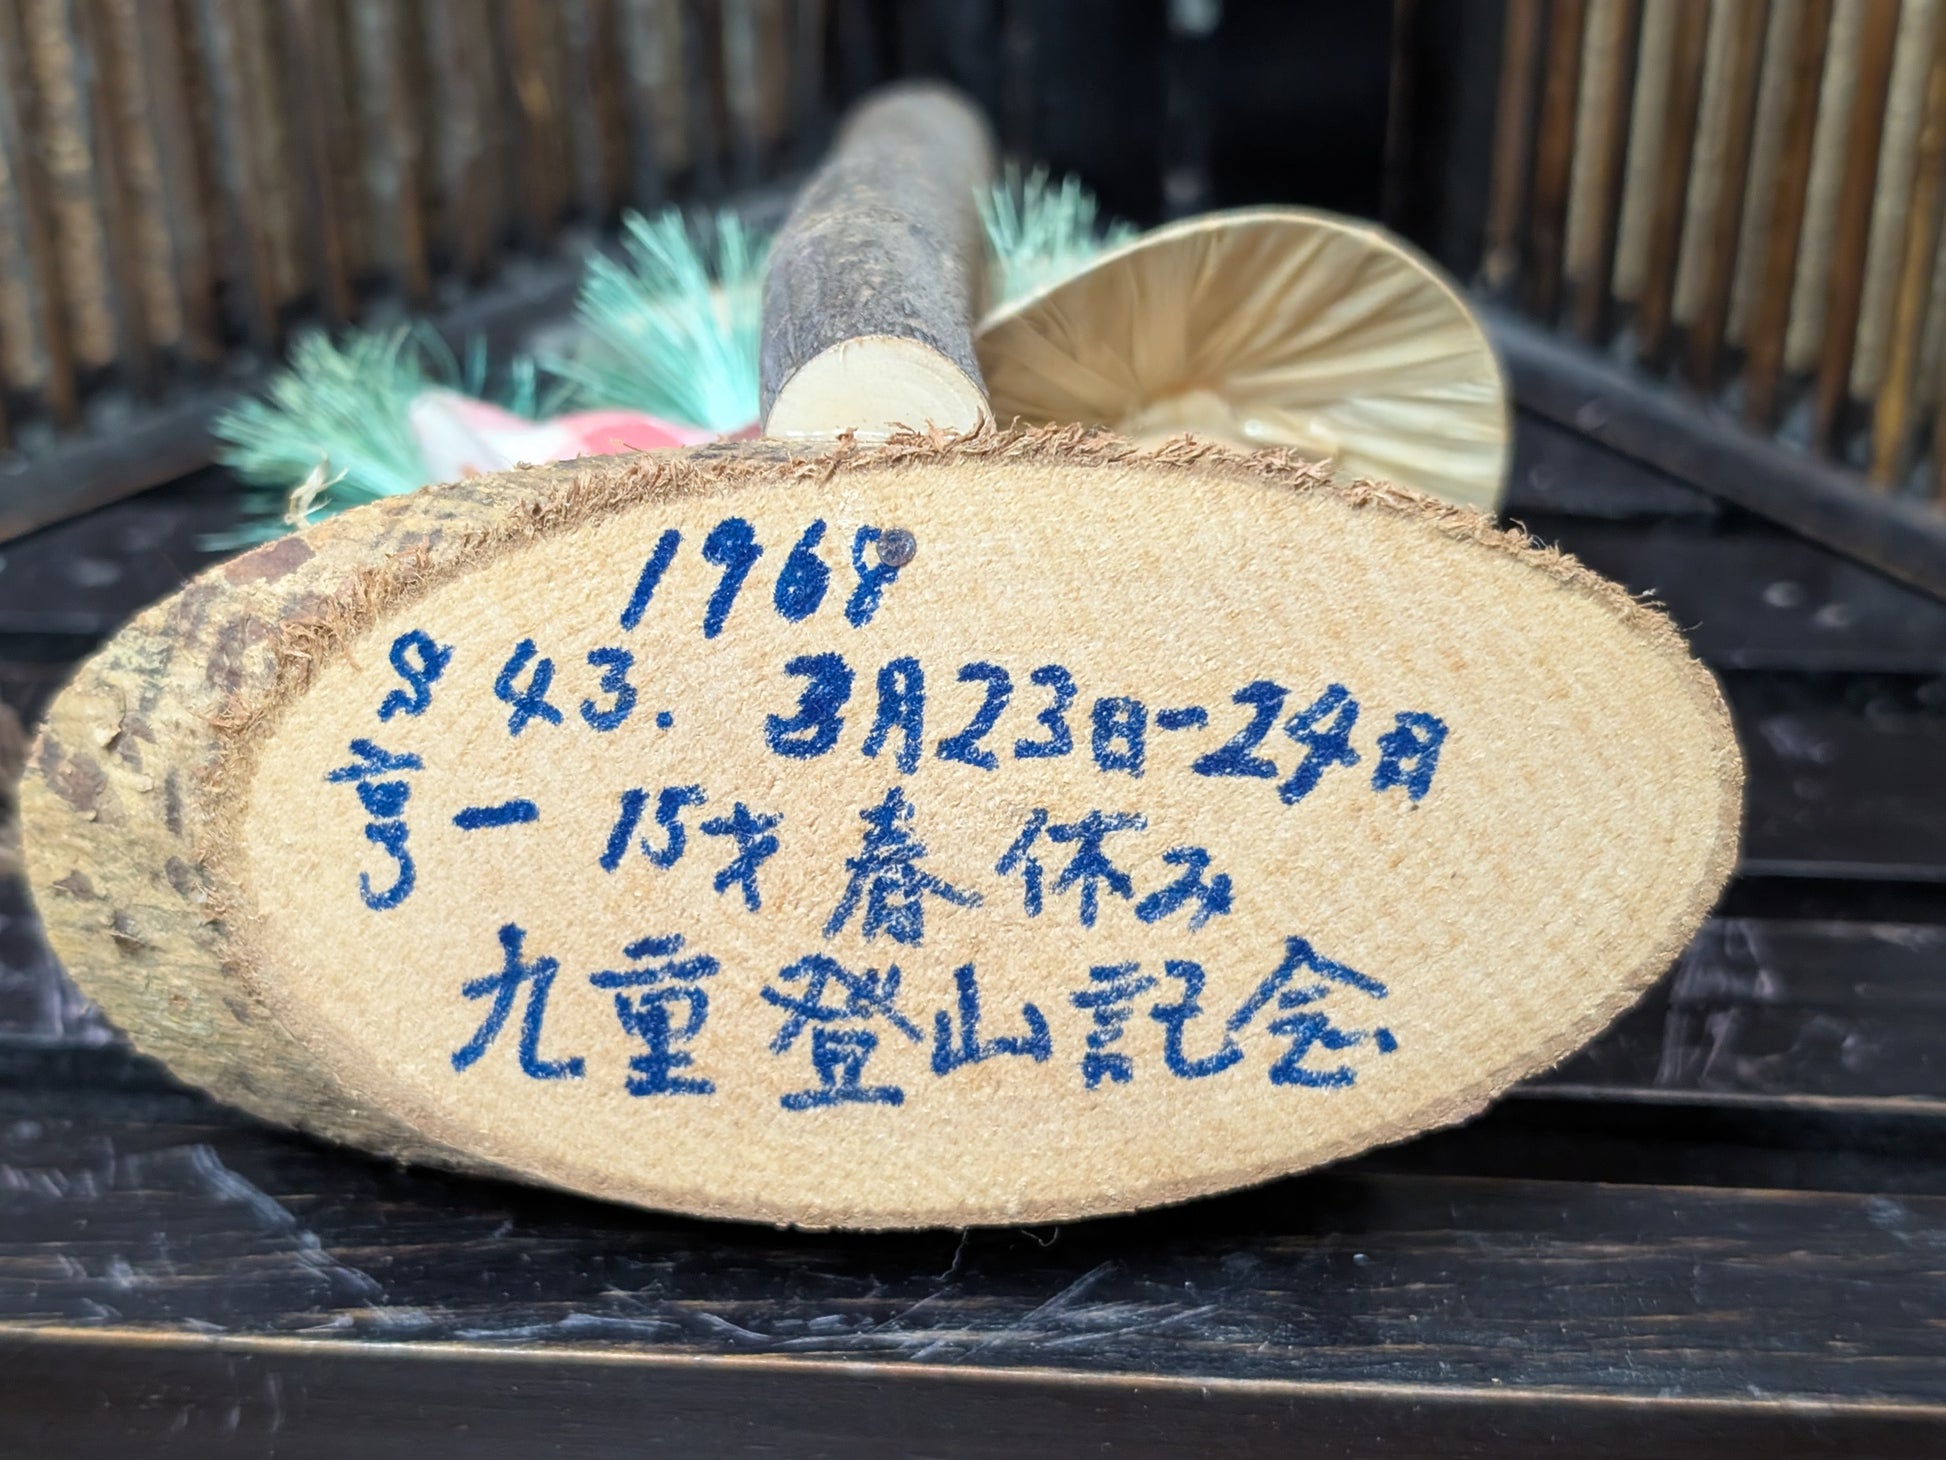 1968
S 43. 3月23日-24日
高一 15才 春休み
九重登山記念